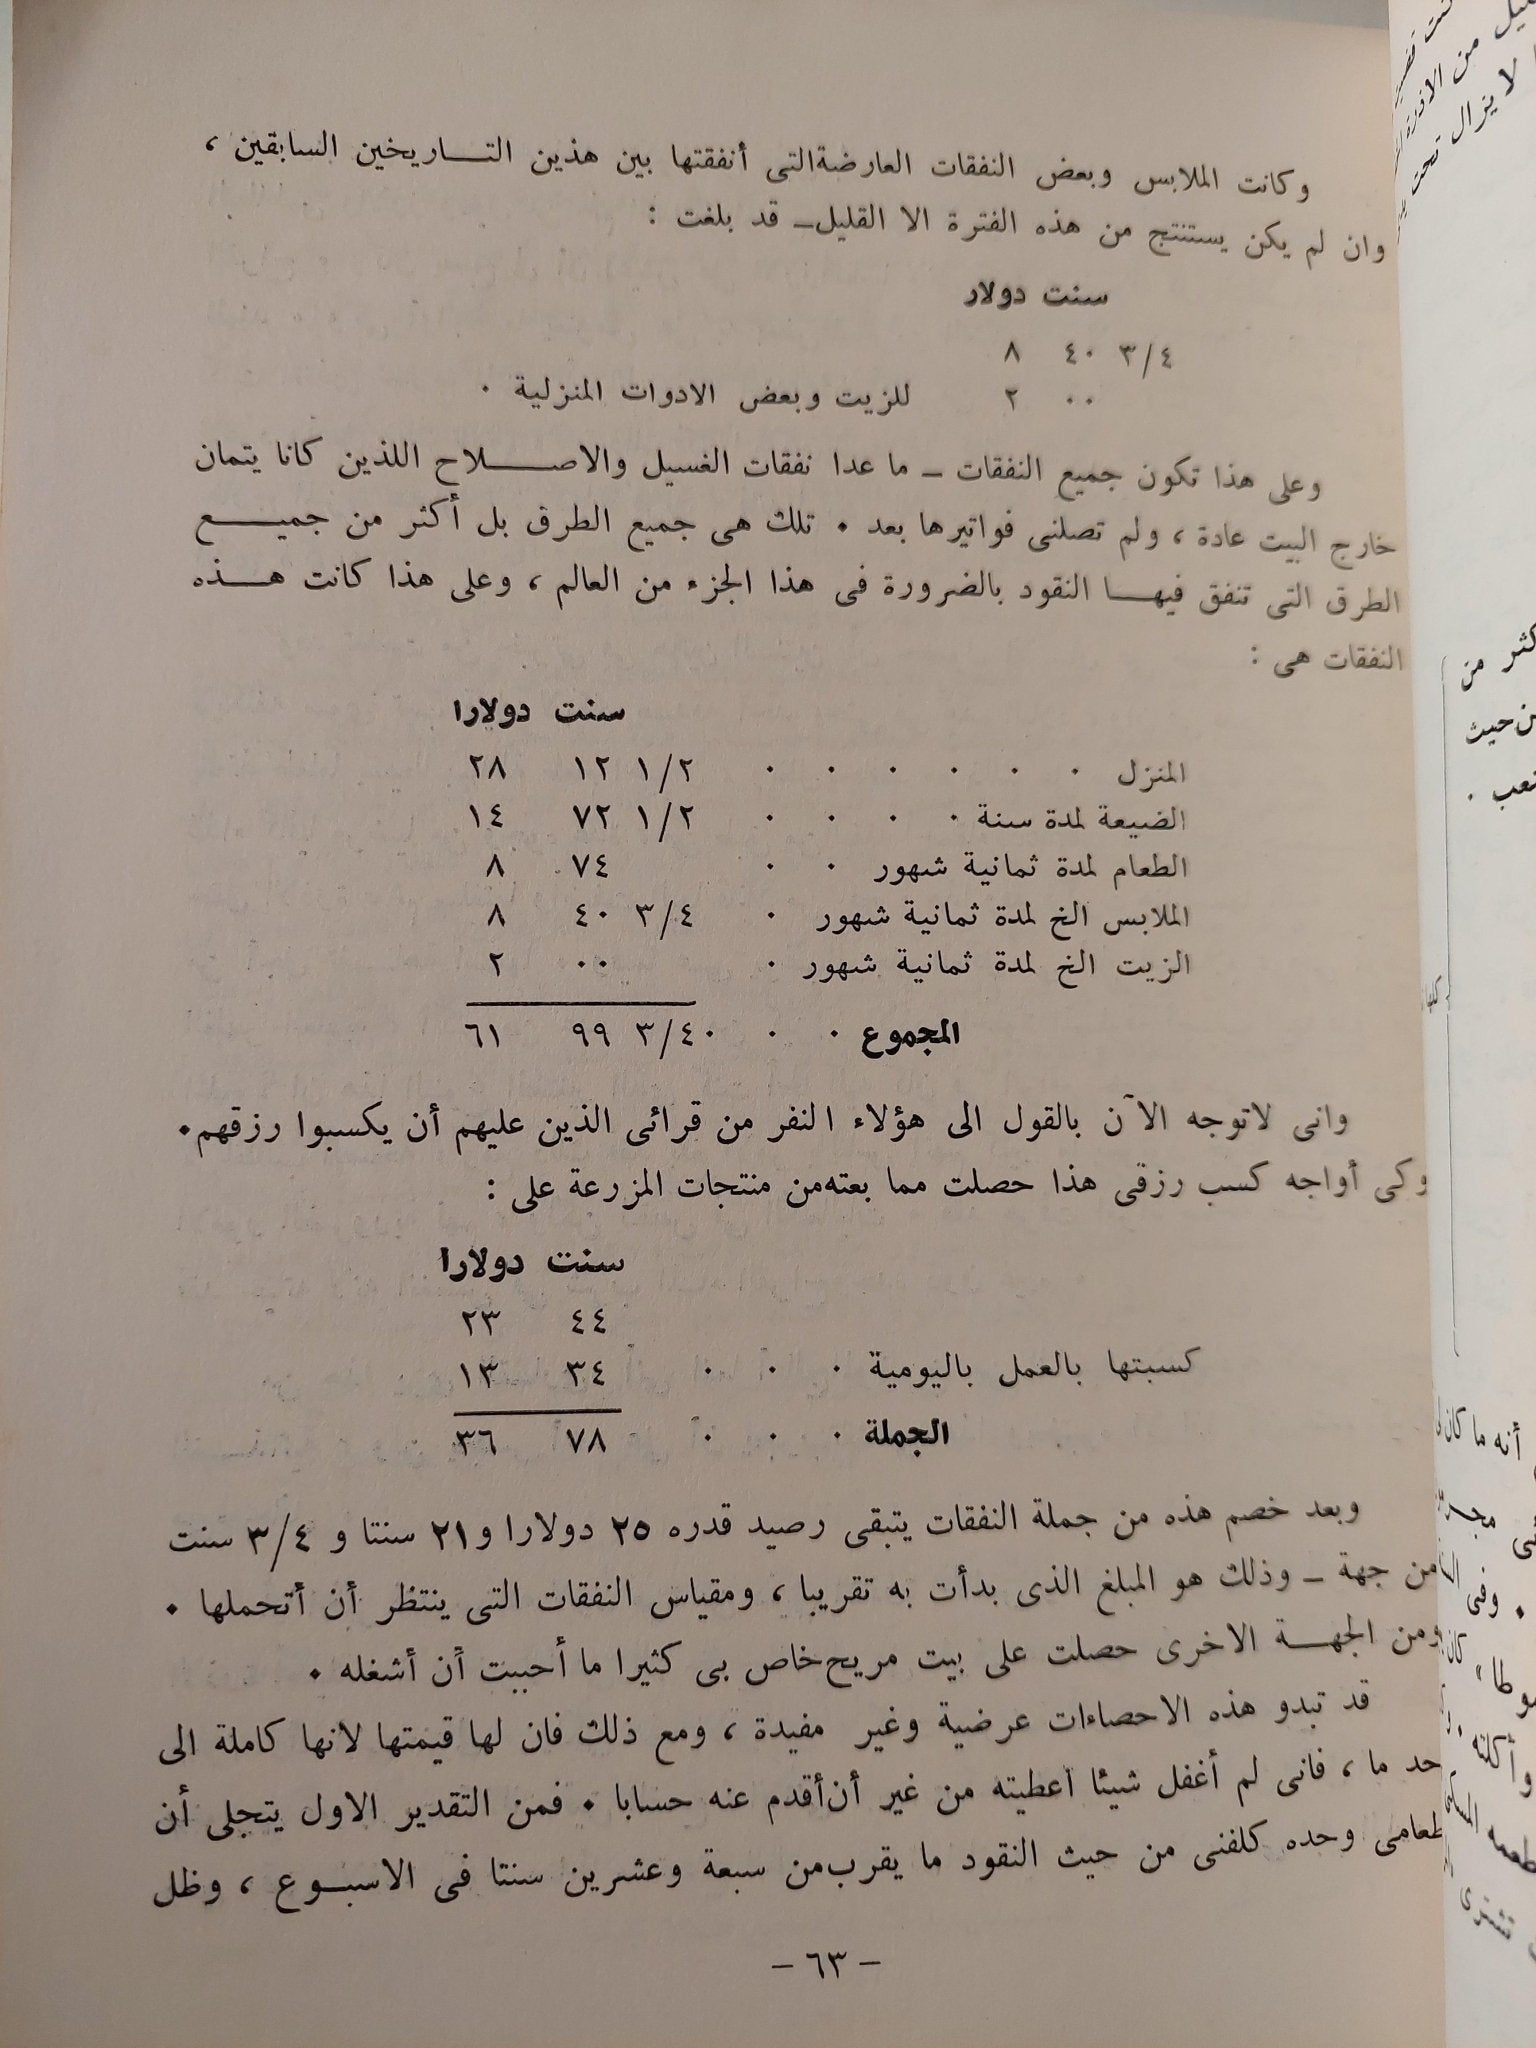 وكانت الملابس وبعض النفقات العارضة التى أنفقتها بين هذين التـــاريخين السابقين ،
وان لم يكن يستنتج من هذه الفترة الا القليل ــ قد بلغت :
سنت دولار
٣/٤ ٤٠ ٨
٠٠ ٢ للزيت وبعض الادوات المنزلية ٠
وعلى هذا تكون جميع النفقات ــ ما عدا نفقات الغسيل والاصـــلاح اللذين كانا يتمان
خارج البيت عادة ، ولم تصلنى فواتيرها بعد ٠ تلك هى جميع الطرق بل أكثر من جميـــع
الطرق التى تنفق فيهـــا النقود بالضرورة فى هذا الجزء من العالم ، وعلى هذا كانت هـــذه
النفقات هى :
سنت دولارا
المنزل ٠ ٠ ٠ ٠ ٠ ٠ ١/٢ ١٢ ٢٨
الضيعة لمدة سنة ٠ ٠ ٠ ٠ ١/٢ ٧٢ ١٤
الطعام لمدة ثمانية شهور ٠ ٠ ٧٤ ٨
الملابس الخ لمدة ثمانية شهور ٠ ٣/٤ ٤٠ ٨
الزيت الخ لمدة ثمانية شهور ٠ ٠٠ ٢
المجموع ٠ ٠ ٠ ٣/٤ ٩٩ ٦١
وانى لاتوجه الآن بالقول الى هؤلاء النفر من قرائى الذين عليهم أن يكسبوا رزقهم٠
وكى أواجه كسب رزقى هذا حصلت مما بعته من منتجات المزرعة على :
سنت دولارا
٤٤ ٢٣
كسبتها بالعمل باليومية ٠ ٠ ٠ ٣٤ ١٣
الجملة ٠ ٠ ٠ ٧٨ ٣٦
وبعد خصم هذه من جملة النفقات يتبقى رصيد قدره ٢٥ دولارا و٢١ سنتا و ٣/٤ سنت
من جهة ــ وذلك هو المبلغ الذى بدأت به تقريبا ، ومقياس النفقات التى ينتظر أن أتحملها ٠
ومن الجهـــة الاخرى حصلت على بيت مريح خاص بى كثيرا ما أحببت أن أشغله ٠
قد تبدو هذه الاحصاءات عرضية وغير مفيدة ، ومع ذلك فان لها قيمتها لانها كاملة الى
حد ما ، فانى لم أغفل شيئا اعطيته من غير أن أقدم عنه حسابا ٠ فمن التقدير الاول يتجلى أن
طعامى وحده كلفنى من حيث النقود ما يقرب من سبعة وعشرين سنتا فى الاسبـــوع ، وظل
ــ ٦٣ ــ
من
لا يزال تحت
كثر من
حيث
أنه ما كان
وفى
وأكلته